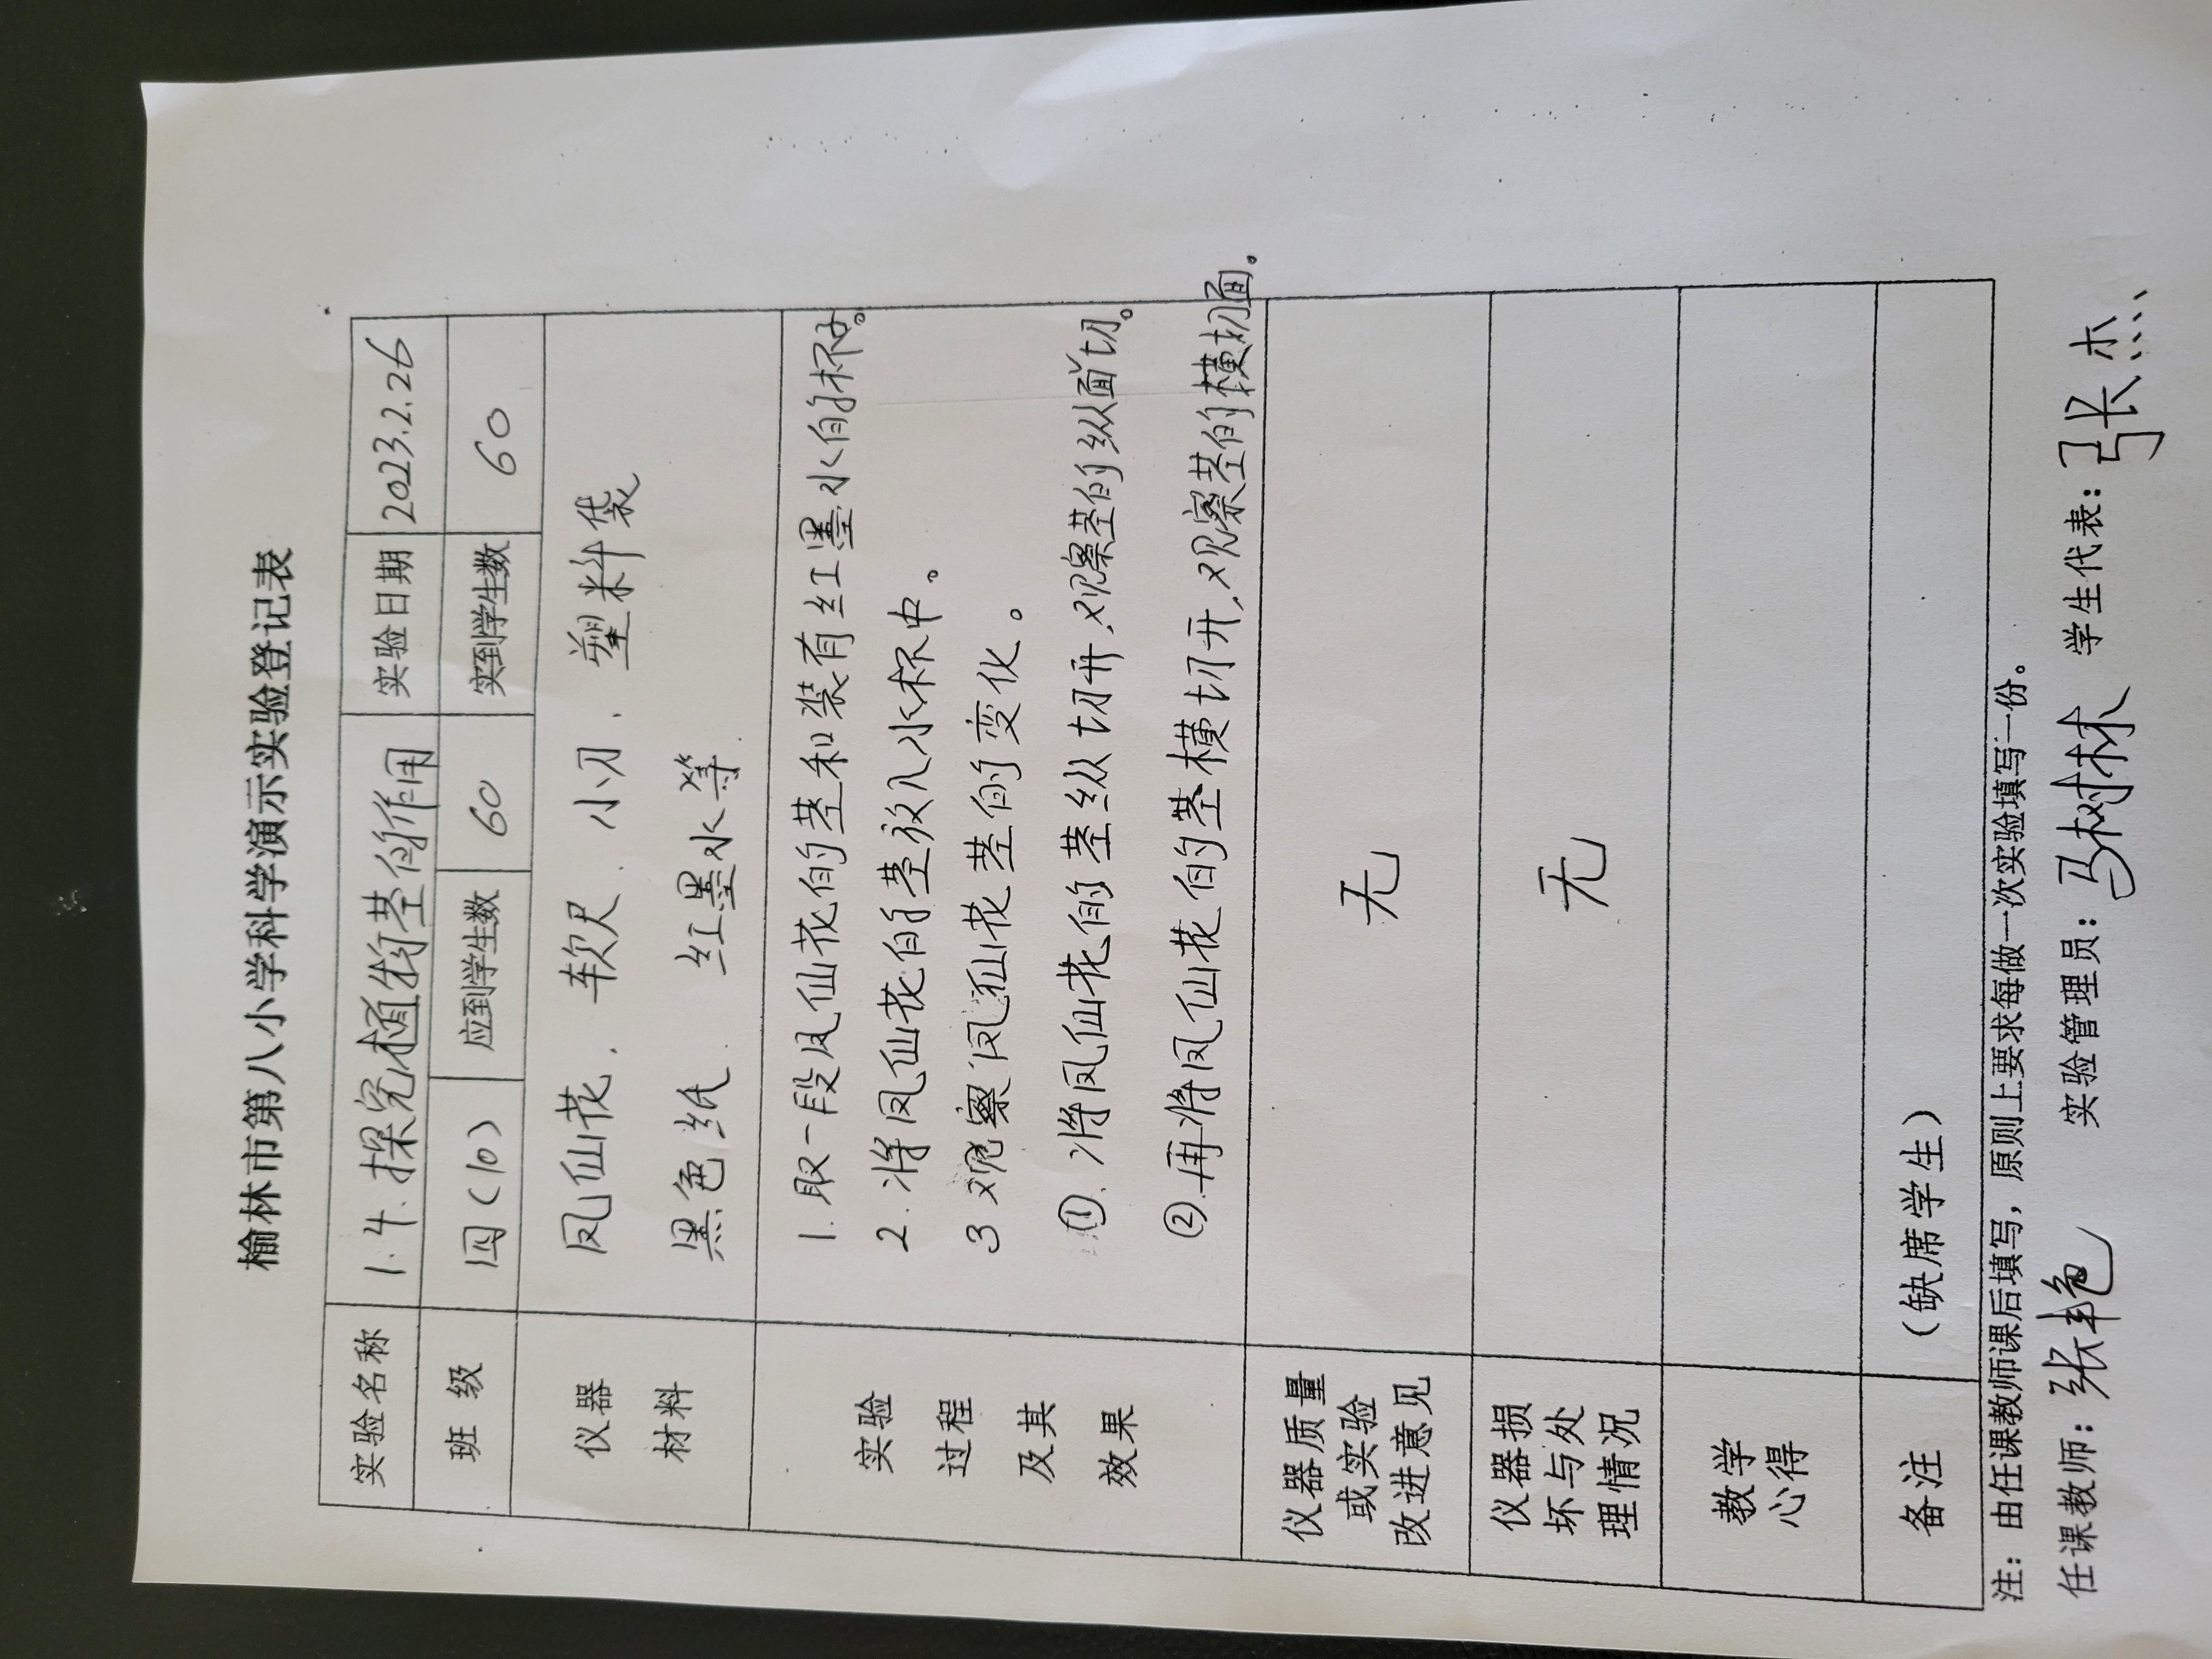 榆林市第八小学科学演示实验登记表
实验名称 1.4.探究植物茎的作用 实验日期 2023.2.26
班 级 四(10) 应到学生数 60 实到学生数 60
仪器 凤仙花. 软尺. 小刀. 塑料袋
材料 黑色纸. 红墨水等.
实验
过程
及其
效果
1.取一段凤仙花的茎和装有红墨水的杯子。
2.将凤仙花的茎放入水杯中。
3 观察凤仙花茎的变化。
①.将凤仙花的茎纵切开,观察茎的纵面切。
②.再将凤仙花的茎横切开,观察茎的横切面。
仪器质量
或实验
改进意见
无
仪器损
坏与处
理情况
无
教学
心得
备注 (缺席学生)
注：由任课教师课后填写，原则上要求每做一次实验填写一份。
任课教师：张艳 实验管理员：马树林 学生代表：张杰